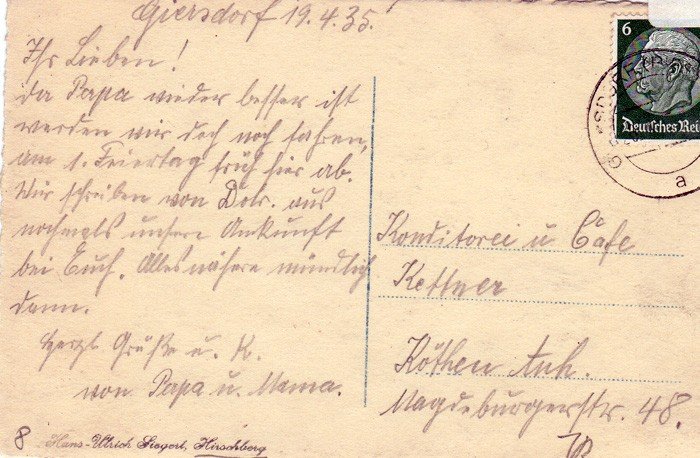 Giersdorf 19.4.35.
Ihr Lieben!
da Papa wieder besser ist
werden wir doch noch fahren,
am 1. Feiertag früh hier ab.
Wir schreiben von Dobr. aus
nochmals unsere Ankunft
bei Euch. Alles nähere mündlich
dann.
Herzl. Grüße u. K.
von Papa u. Mama.
Konditorei u Cafe
Kettner
Köthen Anh.
Magdeburgerstr. 48.
6
Deutsches Rei
a
8
Hans-Ulrich Siegert, Hirschberg